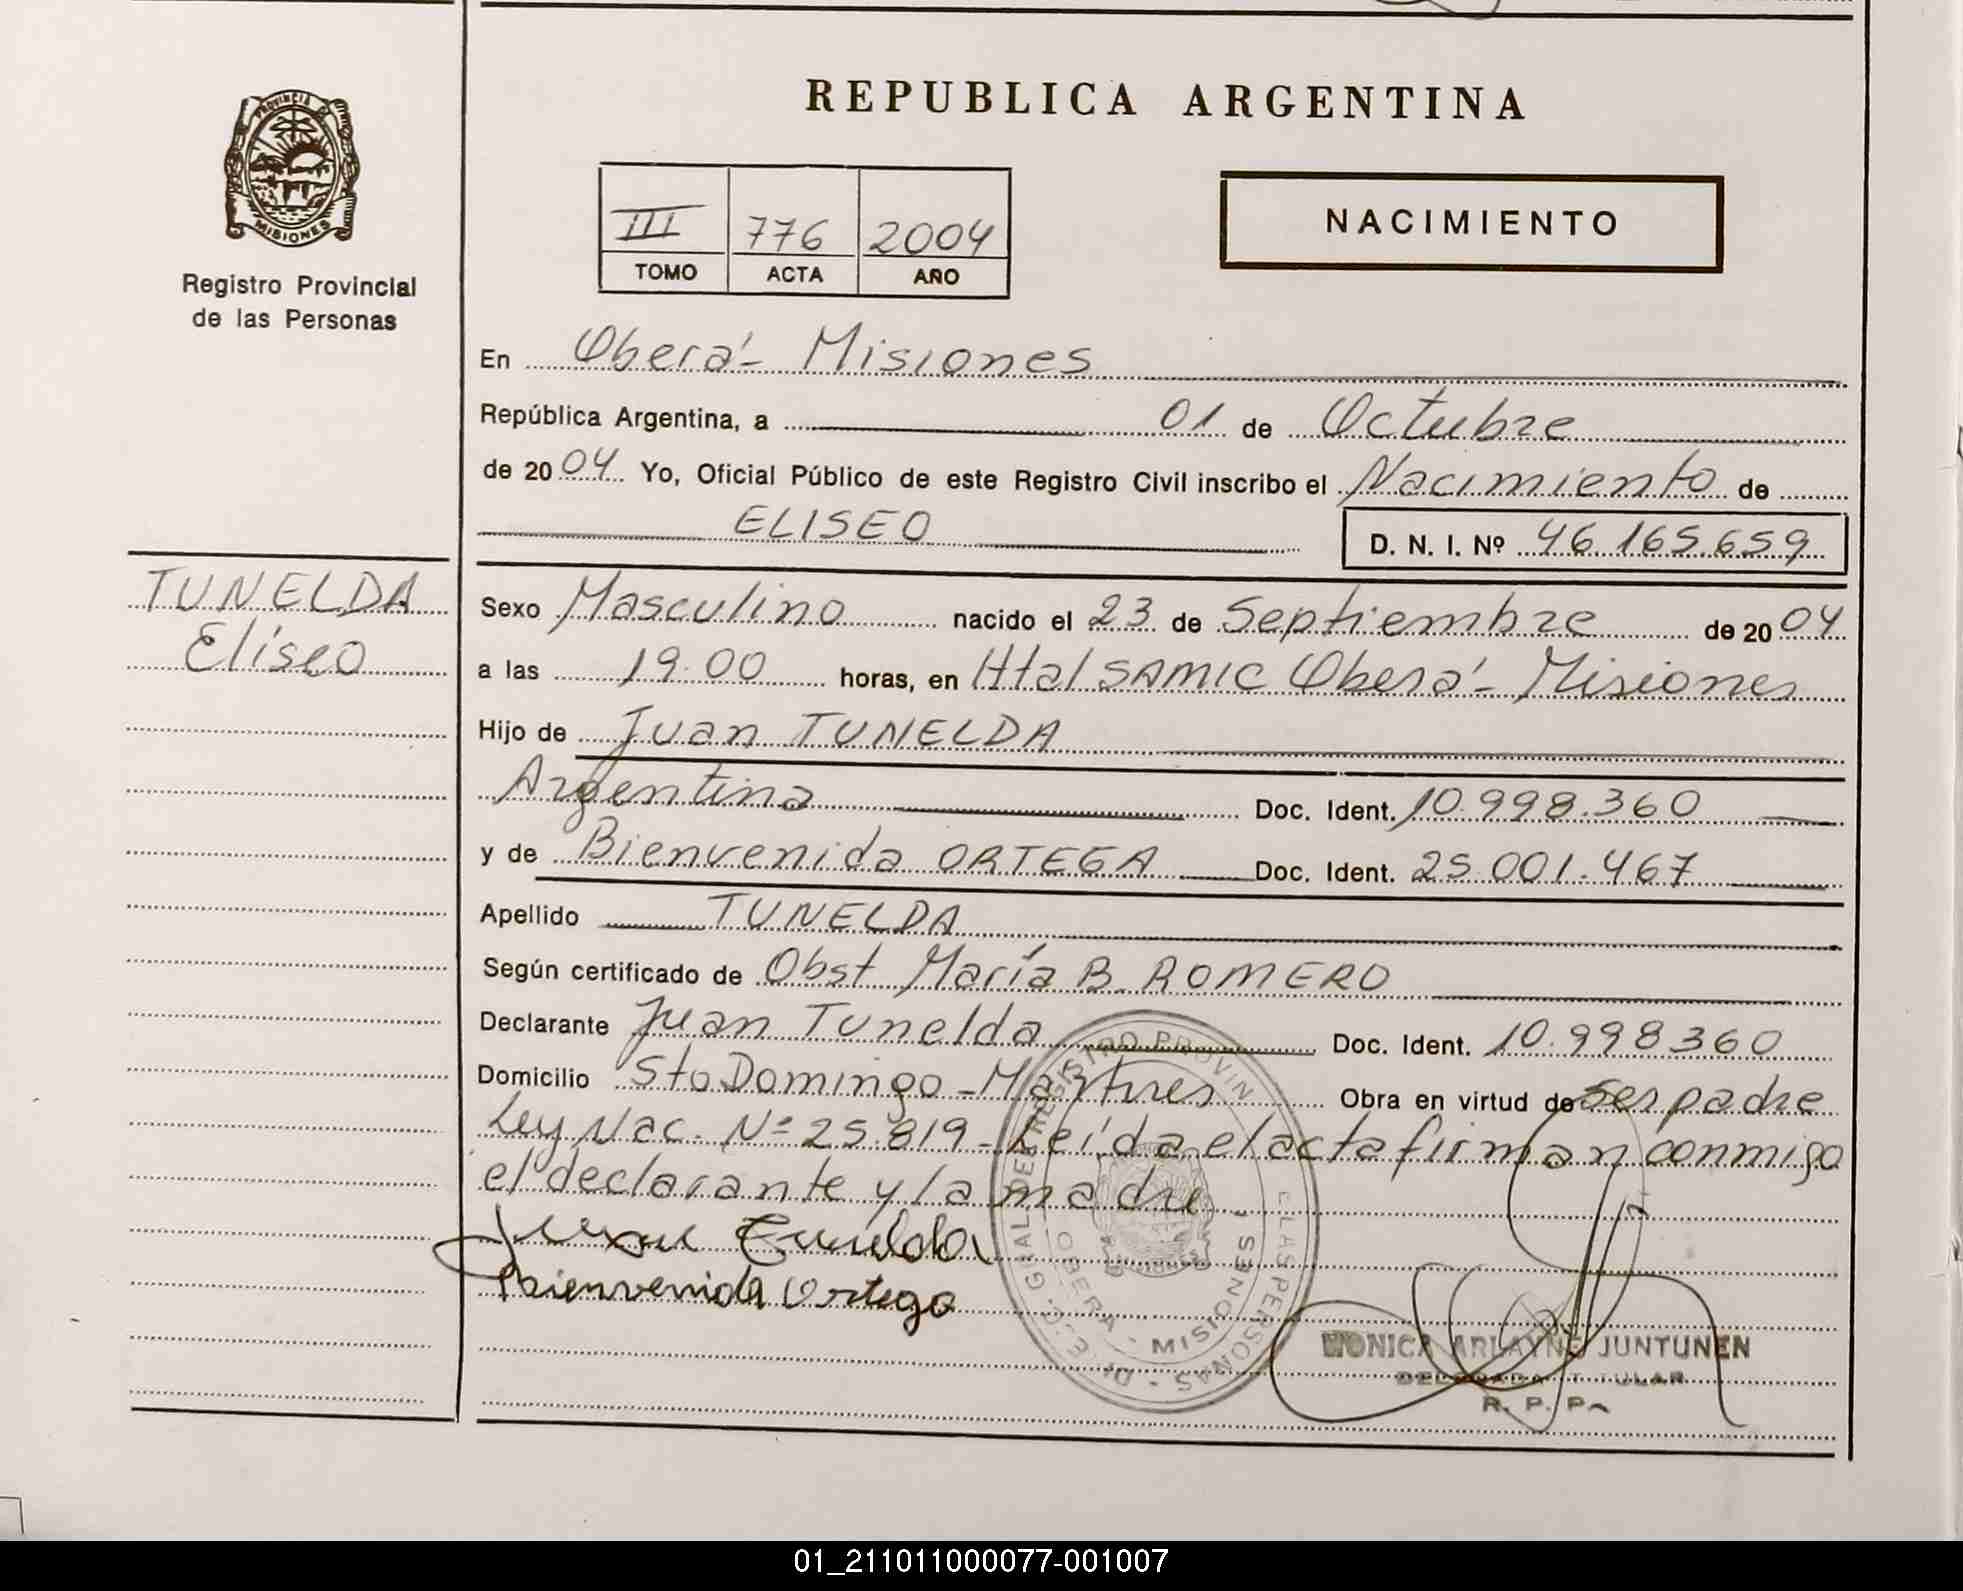 REPUBLICA ARGENTINA
PROVINCIA DE
MISIONES
Registro Provincial
de las Personas
III 776 2004
TOMO ACTA AÑO
NACIMIENTO
En Oberá - Misiones
República Argentina, a 01 de Octubre
de 2004 Yo, Oficial Público de este Registro Civil inscribo el Nacimiento de
ELISEO D. N. I. Nº 46.165.659
TUNELDA
Eliseo
Sexo Masculino nacido el 23 de Septiembre de 2004
a las 19.00 horas, en Htal SAMIC Oberá - Misiones
Hijo de Juan TUNELDA
Argentina Doc. Ident. 10.998.360
y de Bienvenida ORTEGA Doc. Ident. 25.001.467
Apellido TUNELDA
Según certificado de Obst María B. ROMERO
Declarante Juan Tunelda Doc. Ident. 10.998360
Domicilio Sto Domingo - Mártires Obra en virtud de ser padre
Ley Nac. Nº 25.819 - Leída el acta firman conmigo
el declarante y la madre
Juan Tunelda
Bienvenida Ortega
DIREC. GRAL. DEL REGISTRO PROVIN LAS PERSONAS
OBERA - MISIONES
MONICA ARLAYNE JUNTUNEN
DELEGADA TITULAR
R. P. P.
01_211011000077-001007